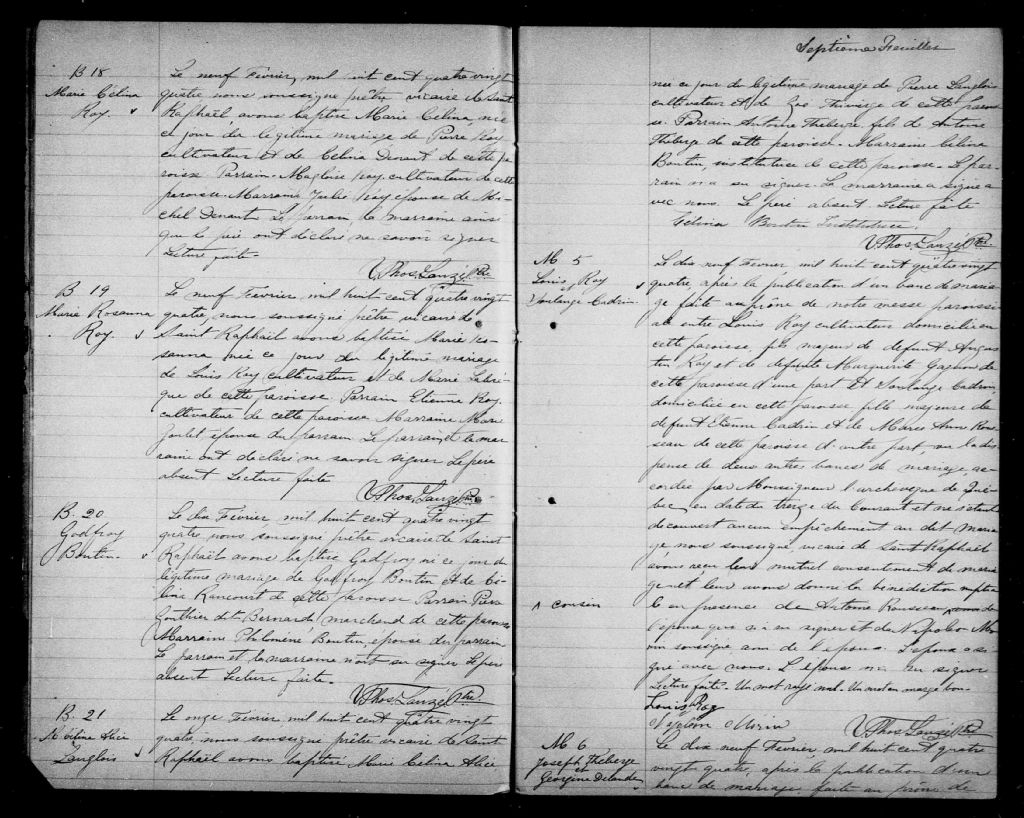 B 18
Marie Célina
Roy.
Le neuf Février, mil huit cent quatre vingt
quatre nous soussigné prêtre vicaire de Saint
Raphaël, avons baptisé Marie Célina, née
ce jour du légitime mariage de Pierre Roy
cultivateur et de Célina Denault de cette pa
roisse. Parrain Magloire Roy, cultivateur de cette
paroisse. Marraine Julie Roy épouse de Mi-
chel Denault. Le parrain la marraine ainsi
que le père ont déclaré ne savoir signer
Lecture faite.
Vthos. Lauzé Ptre
B 19
Marie Rosanna
Roy.
Le neuf Février mil huit cent quatre vingt
quatre, nous soussigné prêtre vicaire de
Saint Raphaël avons baptisé Marie Ro-
sanna née ce jour du légitime mariage
de Louis Roy cultivateur et de Marie Labrè-
que de cette paroisse. Parrain Etienne Roy
cultivateur de cette paroisse Marraine Marie
épouse du parrain. Le parrain et la mar
raine ont déclaré ne savoir signer Le père
absent Lecture faite
Vthos. Lauzé Ptre
B. 20
Godfroy
Boutin.
Le dix Février mil huit cent quatre vingt
quatre nous soussigné prêtre vicaire de Saint
Raphaël avons baptisé Godfroy né ce jour du
légitime mariage de Godfroy Boutin et de Cé-
lina Rancourt de cette paroisse Parrain Pierre
Gonthier dit Bernard marchand de cette paroisse
Marraine Philomène Boutin, épouse du parrain.
Le parrain et la marraine n'ont su signer Le père
absent Lecture faite.
Vthos. Lauzé Ptre.
B. 21
M. Célina Alice
Langlois
Le onze Février, mil huit cent quatre vingt
quatre, nous soussigné prêtre vicaire de Saint
Raphaël avons baptisé Marie Célina Alice
Septième Feuillet
née ce jour du légitime mariage de Pierre Langlois
cultivateur et de Zoé Théberge de cette parois
se. Parrain Antoine Théberge, fils de Antoine
Théberge de cette paroisse. Marraine Célina
Boutin, institutrice de cette paroisse. Le par-
rain n'a su signer. La marraine a signé a
vec nous. Le père absent Lecture faite
Célina Boutin Institutrice.
Vthos. Lauzé Ptre.
M 5
Louis Roy
Soulange Cadrin.
Le dix neuf Février mil huit cent quatre vingt
quatre, après la publication d'un banc de maria
ge faite au prône de notre messe paroissi
ale entre Louis Roy cultivateur domicilié en
cette paroisse, fils majeur de defunt Augus
tin Roy et de defunte Marguerite Gagnon de
cette paroisse d'une part Et Soulange Cadrin,
domiciliée en cette paroisse fille majeure de
defunt Etienne Cadrin et de Marie Anne Rous
seau de cette paroisse d'autre part, vu la dis
pense de deux autres bancs de mariage, ac-
cordée par Monseigneur l'archevêque de Qué-
bec, en date du treize du Courant et ne s'étant
découvert aucun empêchement au dit maria
ge, nous soussigné, vicaire de Saint Raphaël
avons reçu leur mutuel consentement de maria
ge et leur avons donné la bénédiction nuptia
le en présence de Antoine Rousseau de
^ cousin
l'épouse qui n'a su signer et de Napoléon Mo
rin soussigné ami de l'époux. L'époux a si-
gné avec nous. L'épouse n'a su signer
Lecture faite. Un mot rayé nul. Un mot en marge bon.
Louis Roy
Napoléon Morin
Vthos. Lauzé Ptre
M 6
Joseph Théberge
et
Georgine Delande.
Le dix neuf Février, mil huit cent quatre
vingt quatre, après la publication d'un
banc de mariage faite au prône de